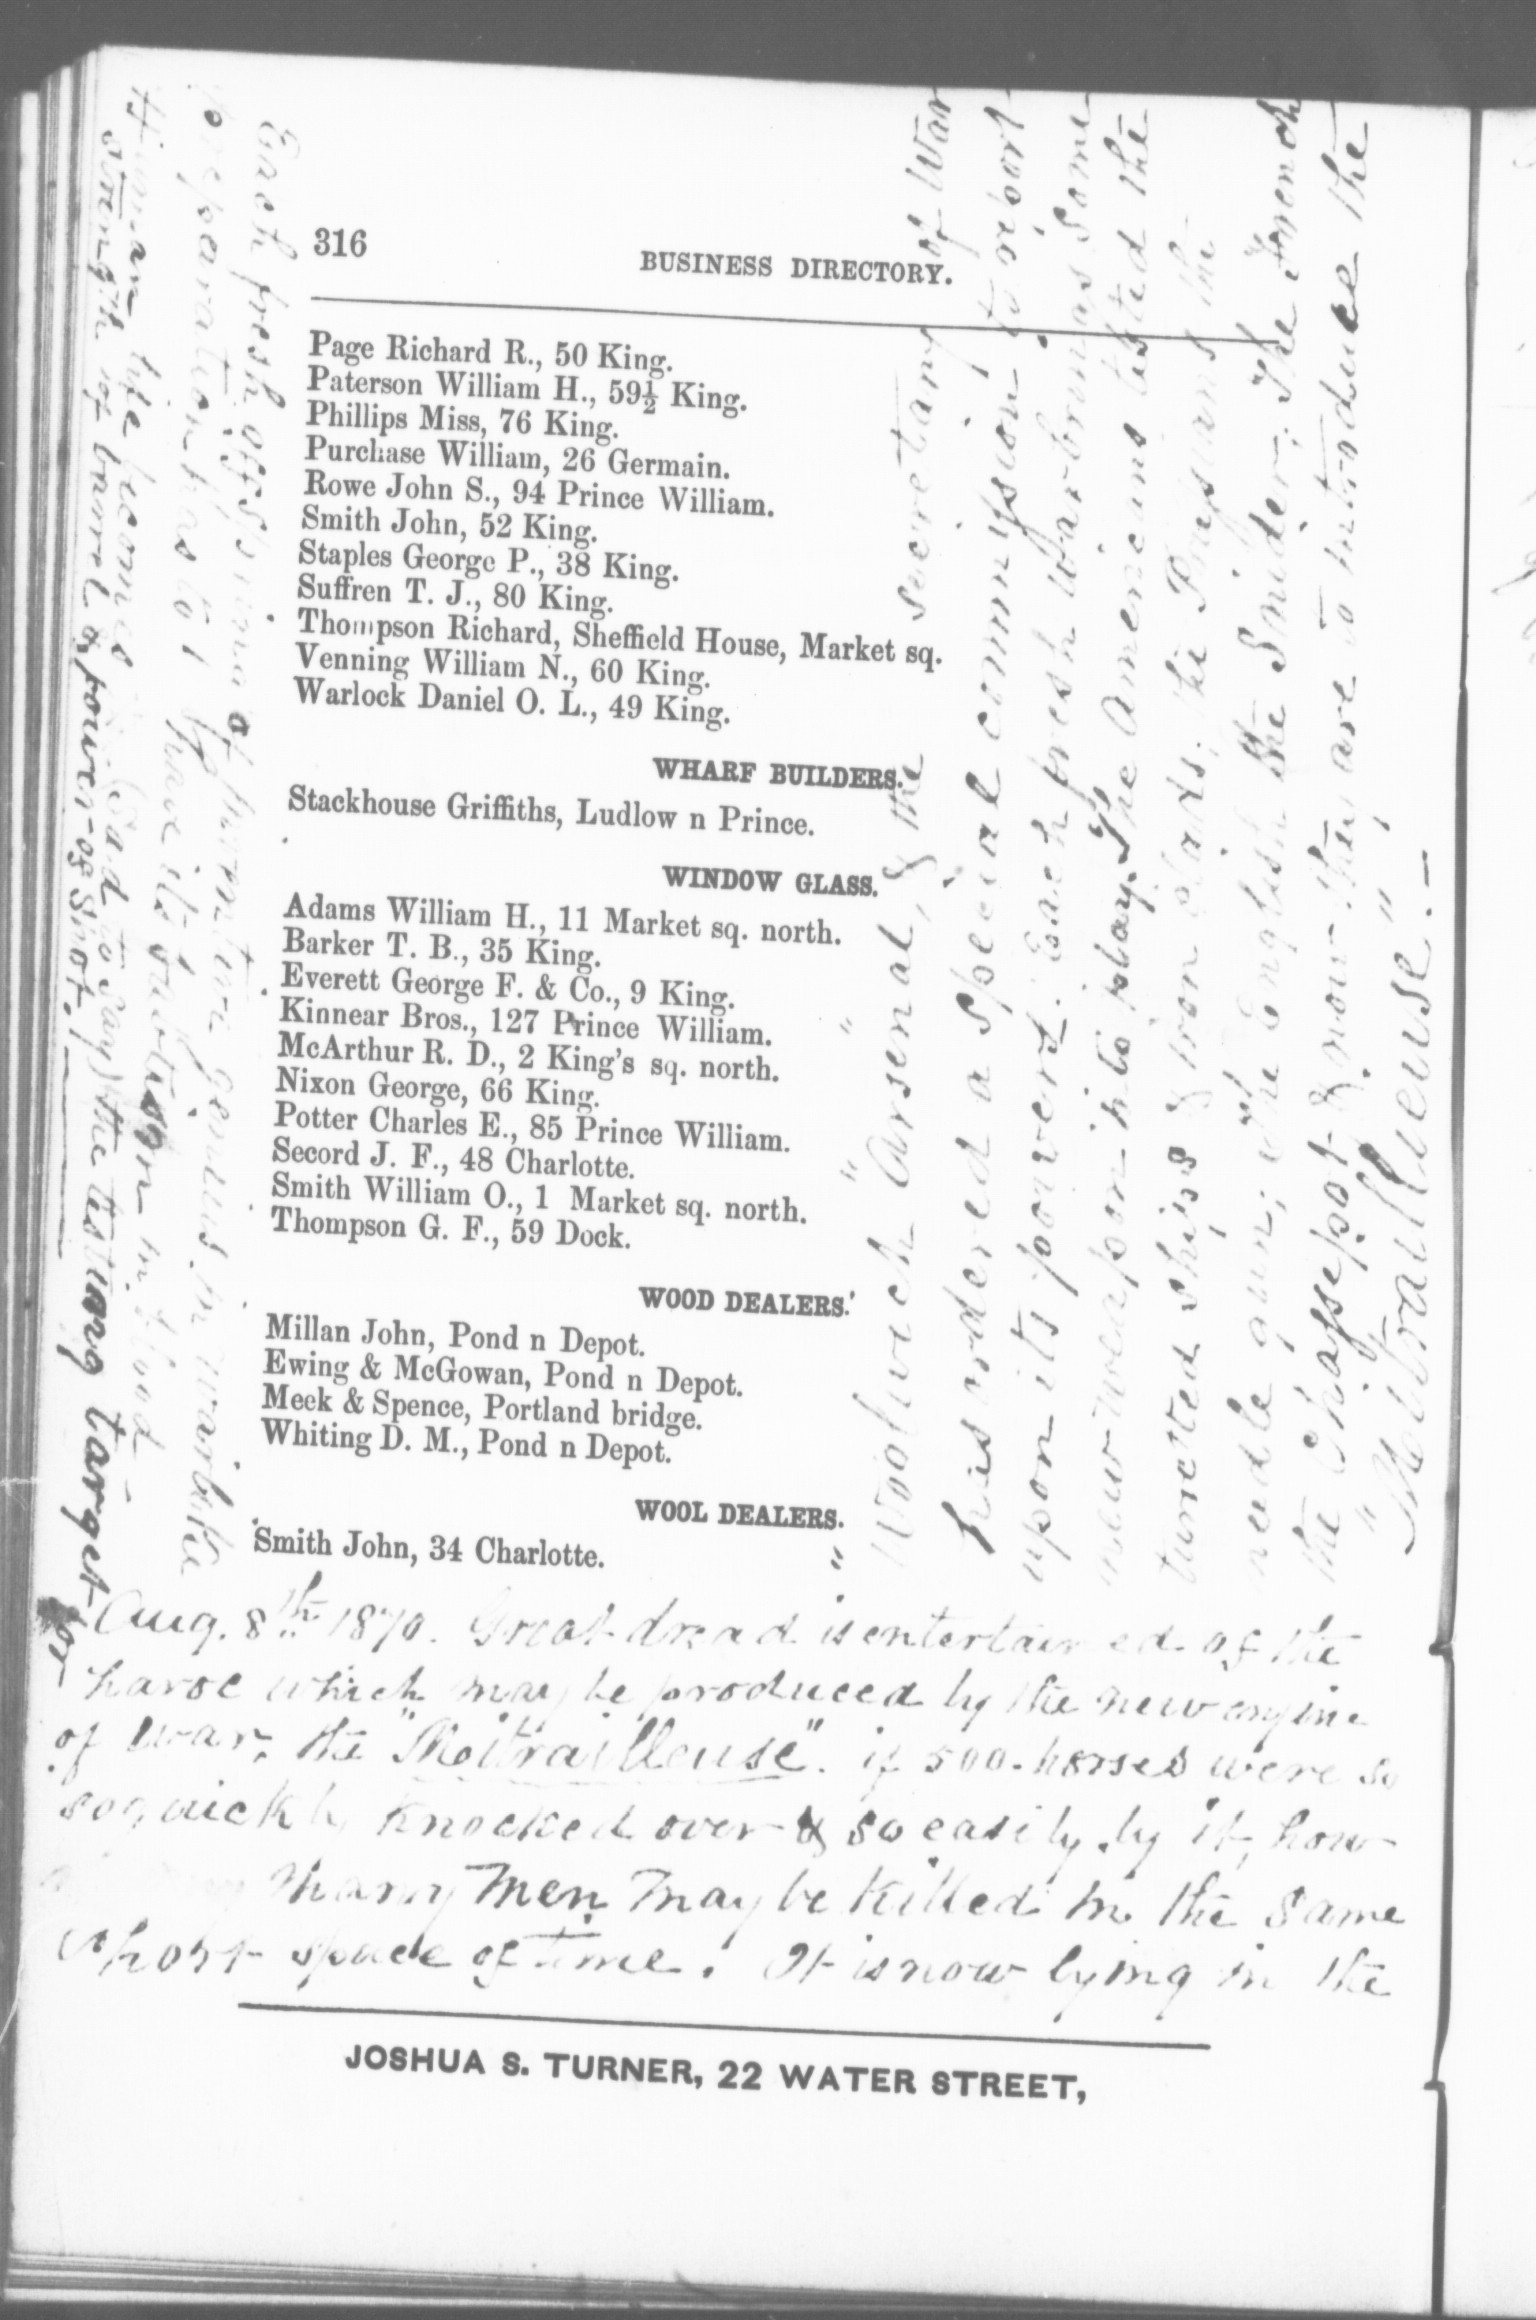 316
BUSINESS DIRECTORY.
Page Richard R., 50 King.
Paterson William H., 59½ King.
Phillips Miss, 76 King.
Purchase William, 26 Germain.
Rowe John S., 94 Prince William.
Smith John, 52 King.
Staples George P., 38 King.
Suffren T. J., 80 King.
Thompson Richard, Sheffield House, Market sq.
Venning William N., 60 King.
Warlock Daniel O. L., 49 King.
WHARF BUILDERS.
Stackhouse Griffiths, Ludlow n Prince.
WINDOW GLASS.
Adams William H., 11 Market sq. north.
Barker T. B., 35 King.
Everett George F. & Co., 9 King.
Kinnear Bros., 127 Prince William.
McArthur R. D., 2 King's sq. north.
Nixon George, 66 King.
Potter Charles E., 85 Prince William.
Secord J. F., 48 Charlotte.
Smith William O., 1 Market sq. north.
Thompson G. F., 59 Dock.
WOOD DEALERS.
Millan John, Pond n Depot.
Ewing & McGowan, Pond n Depot.
Meek & Spence, Portland bridge.
Whiting D. M., Pond n Depot.
WOOL DEALERS.
Smith John, 34 Charlotte.
Aug. 8th 1870. Great dread is entertained of the
havoc which may be produced by the new engine
of war, the "Mitrailleuse". if 500 horses were so
so quickly knocked over & so easily by it, how
many men may be killed in the same
short space of time. It is now lying in the
Woolwich Arsenal, & the secretary of War
has ordered a special commission to report
upon its powers. Each fresh war brings some
new weapon into play. The Americans tested the
turreted ships & iron clads; the Prussians the
needle gun; the English the Snider; the French
the Chassepot & now they are to introduce the
"Mitrailleuse".
Each fresh offspring of inventive genius in warlike
preparation has to have its baptism in blood
Human life becomes (sad to say) the testing target for
strength of barrel & power of shot!
JOSHUA S. TURNER, 22 WATER STREET,